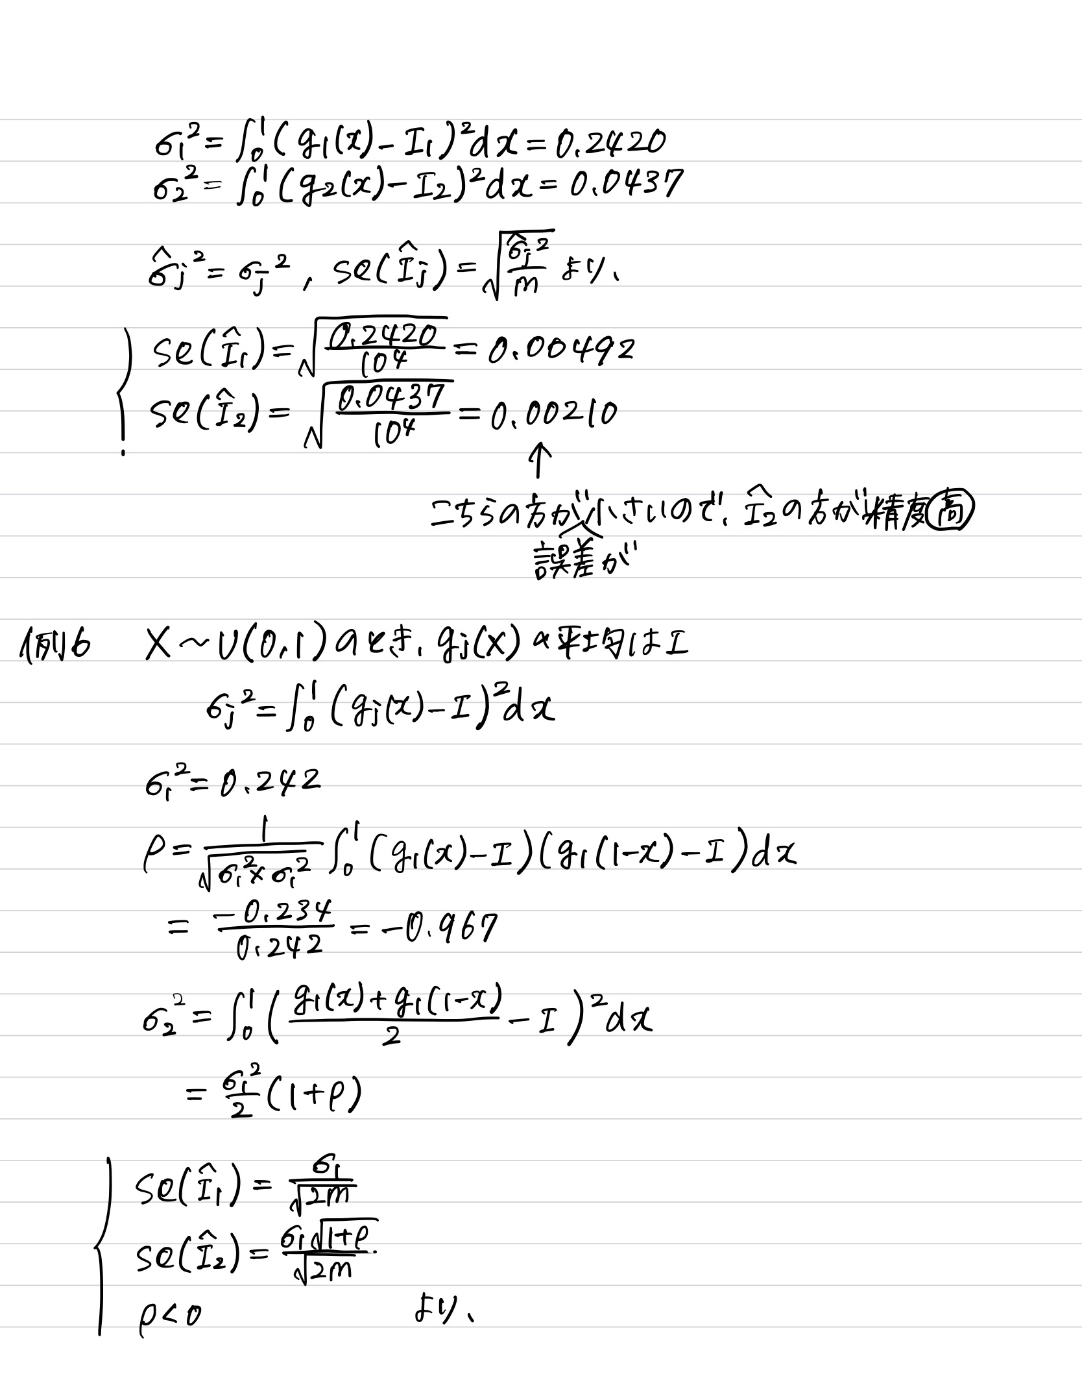 σ₁² = ∫₀¹ (g₁(x) - I₁)² dx = 0.2420
σ₂² = ∫₀¹ (g₂(x) - I₂)² dx = 0.0437
σ̂ⱼ² = σⱼ², se(Îⱼ) = √(σ̂ⱼ²/m) より、
se(Î₁) = √(0.2420/10⁴) = 0.00492
se(Î₂) = √(0.0437/10⁴) = 0.00210
↑
こちらの方が小さいので、Î₂の方が精度高
誤差が
例6 X~U(0,1)のとき、gⱼ(x)の平均はI
σⱼ² = ∫₀¹ (gⱼ(x) - I)² dx
σ₁² = 0.242
ρ = 1/√(σ₁²×σ₁²) ∫₀¹ (g₁(x) - I)(g₁(1-x) - I) dx
= -0.234/0.242 = -0.967
σ₂² = ∫₀¹ ((g₁(x) + g₁(1-x))/2 - I)² dx
= σ₁²/2 (1+ρ)
se(Î₁) = σ₁/√2m
se(Î₂) = σ₁√1+ρ/√2m
ρ<0 より、